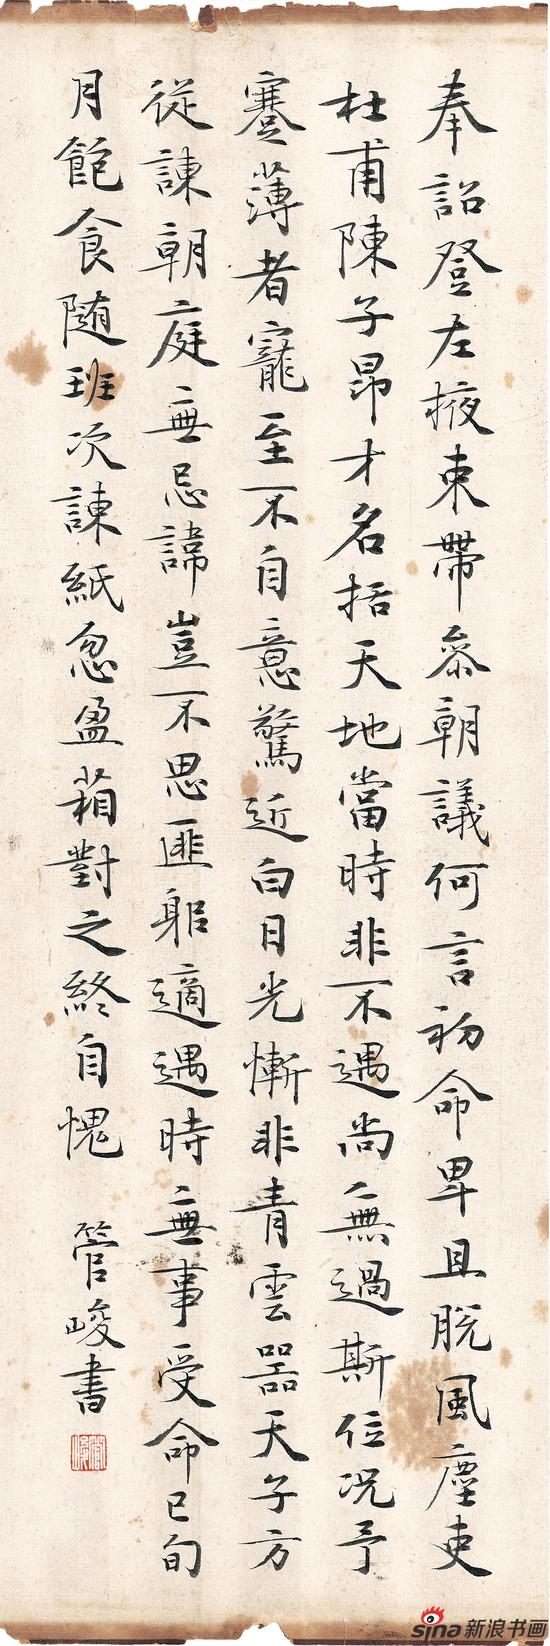 奉詔登左掖束帶參朝議何言初命卑且脫風塵吏
杜甫陳子昂才名括天地當時非不遇尚無過斯位況予
蹇薄者寵至不自意驚近白日光慚非青雲器天子方
從諫朝庭無忌諱豈不思匪躬適遇時無事受命已旬
月飽食随班次諫紙忽盈箱對之終自愧
管峻書
管峻
sina新浪书画